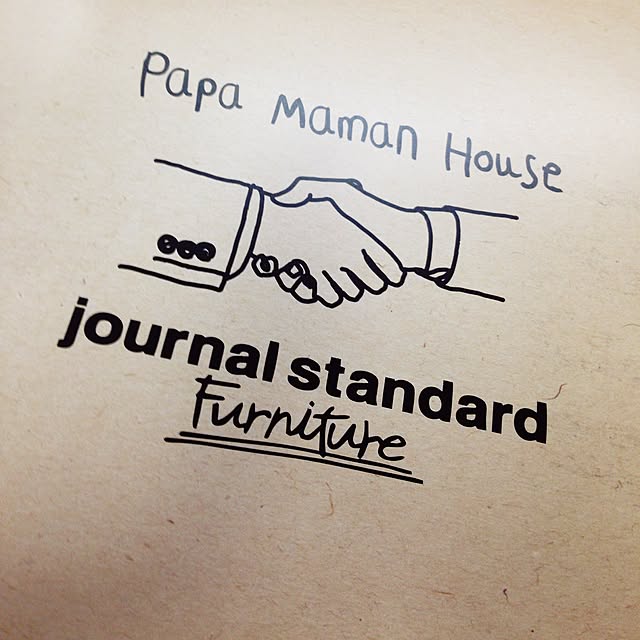 Papa Maman House
journal standard
Furniture